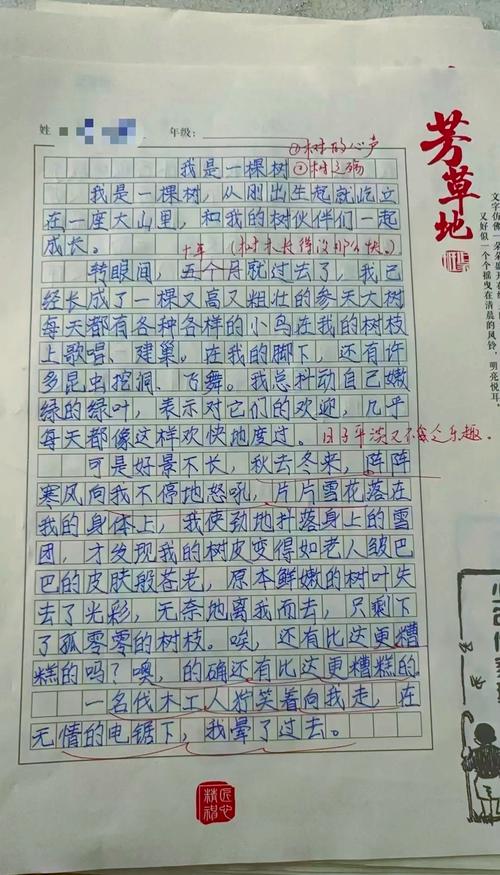 芳草地
姓
年级：
①树的心声
我是一棵树
②树之殇
我是一棵树，从刚出生起就屹立
在一座大山里，和我的树伙伴们一起
成长。
十年（树木长得没那么快。）
转眼间，五个月就过去了，我已
经长成了一棵又高又粗壮的参天大树
每天都有各种各样的小鸟在我的树枝
上歌唱、建巢。在我的脚下，还有许
多昆虫挖洞、飞舞。我总抖动自己嫩
绿的绿叶，表示对它们的欢迎，几乎
每天都像这样欢快地度过。
日子平淡又不失乐趣。
可是好景不长，秋去冬来，阵阵
寒风向我不停地怒吼，片片雪花落在
我的身体上，我使劲地抖落身上的雪
团，才发现我的树皮变得如老人皱巴
巴的皮肤般苍老，原本鲜嫩的树叶失
去了光彩，无奈地离我而去，只剩下
了孤零零的树枝。唉，还有比这更糟
糕的吗？噢，的确还有比这更糟糕的。
一名伐木工人狞笑着向我走，在
无情的电锯下，我晕了过去。
文字仿佛一朵朵
又好似一个个摇曳在清晨的风铃，明亮悦耳。
匠心
精神